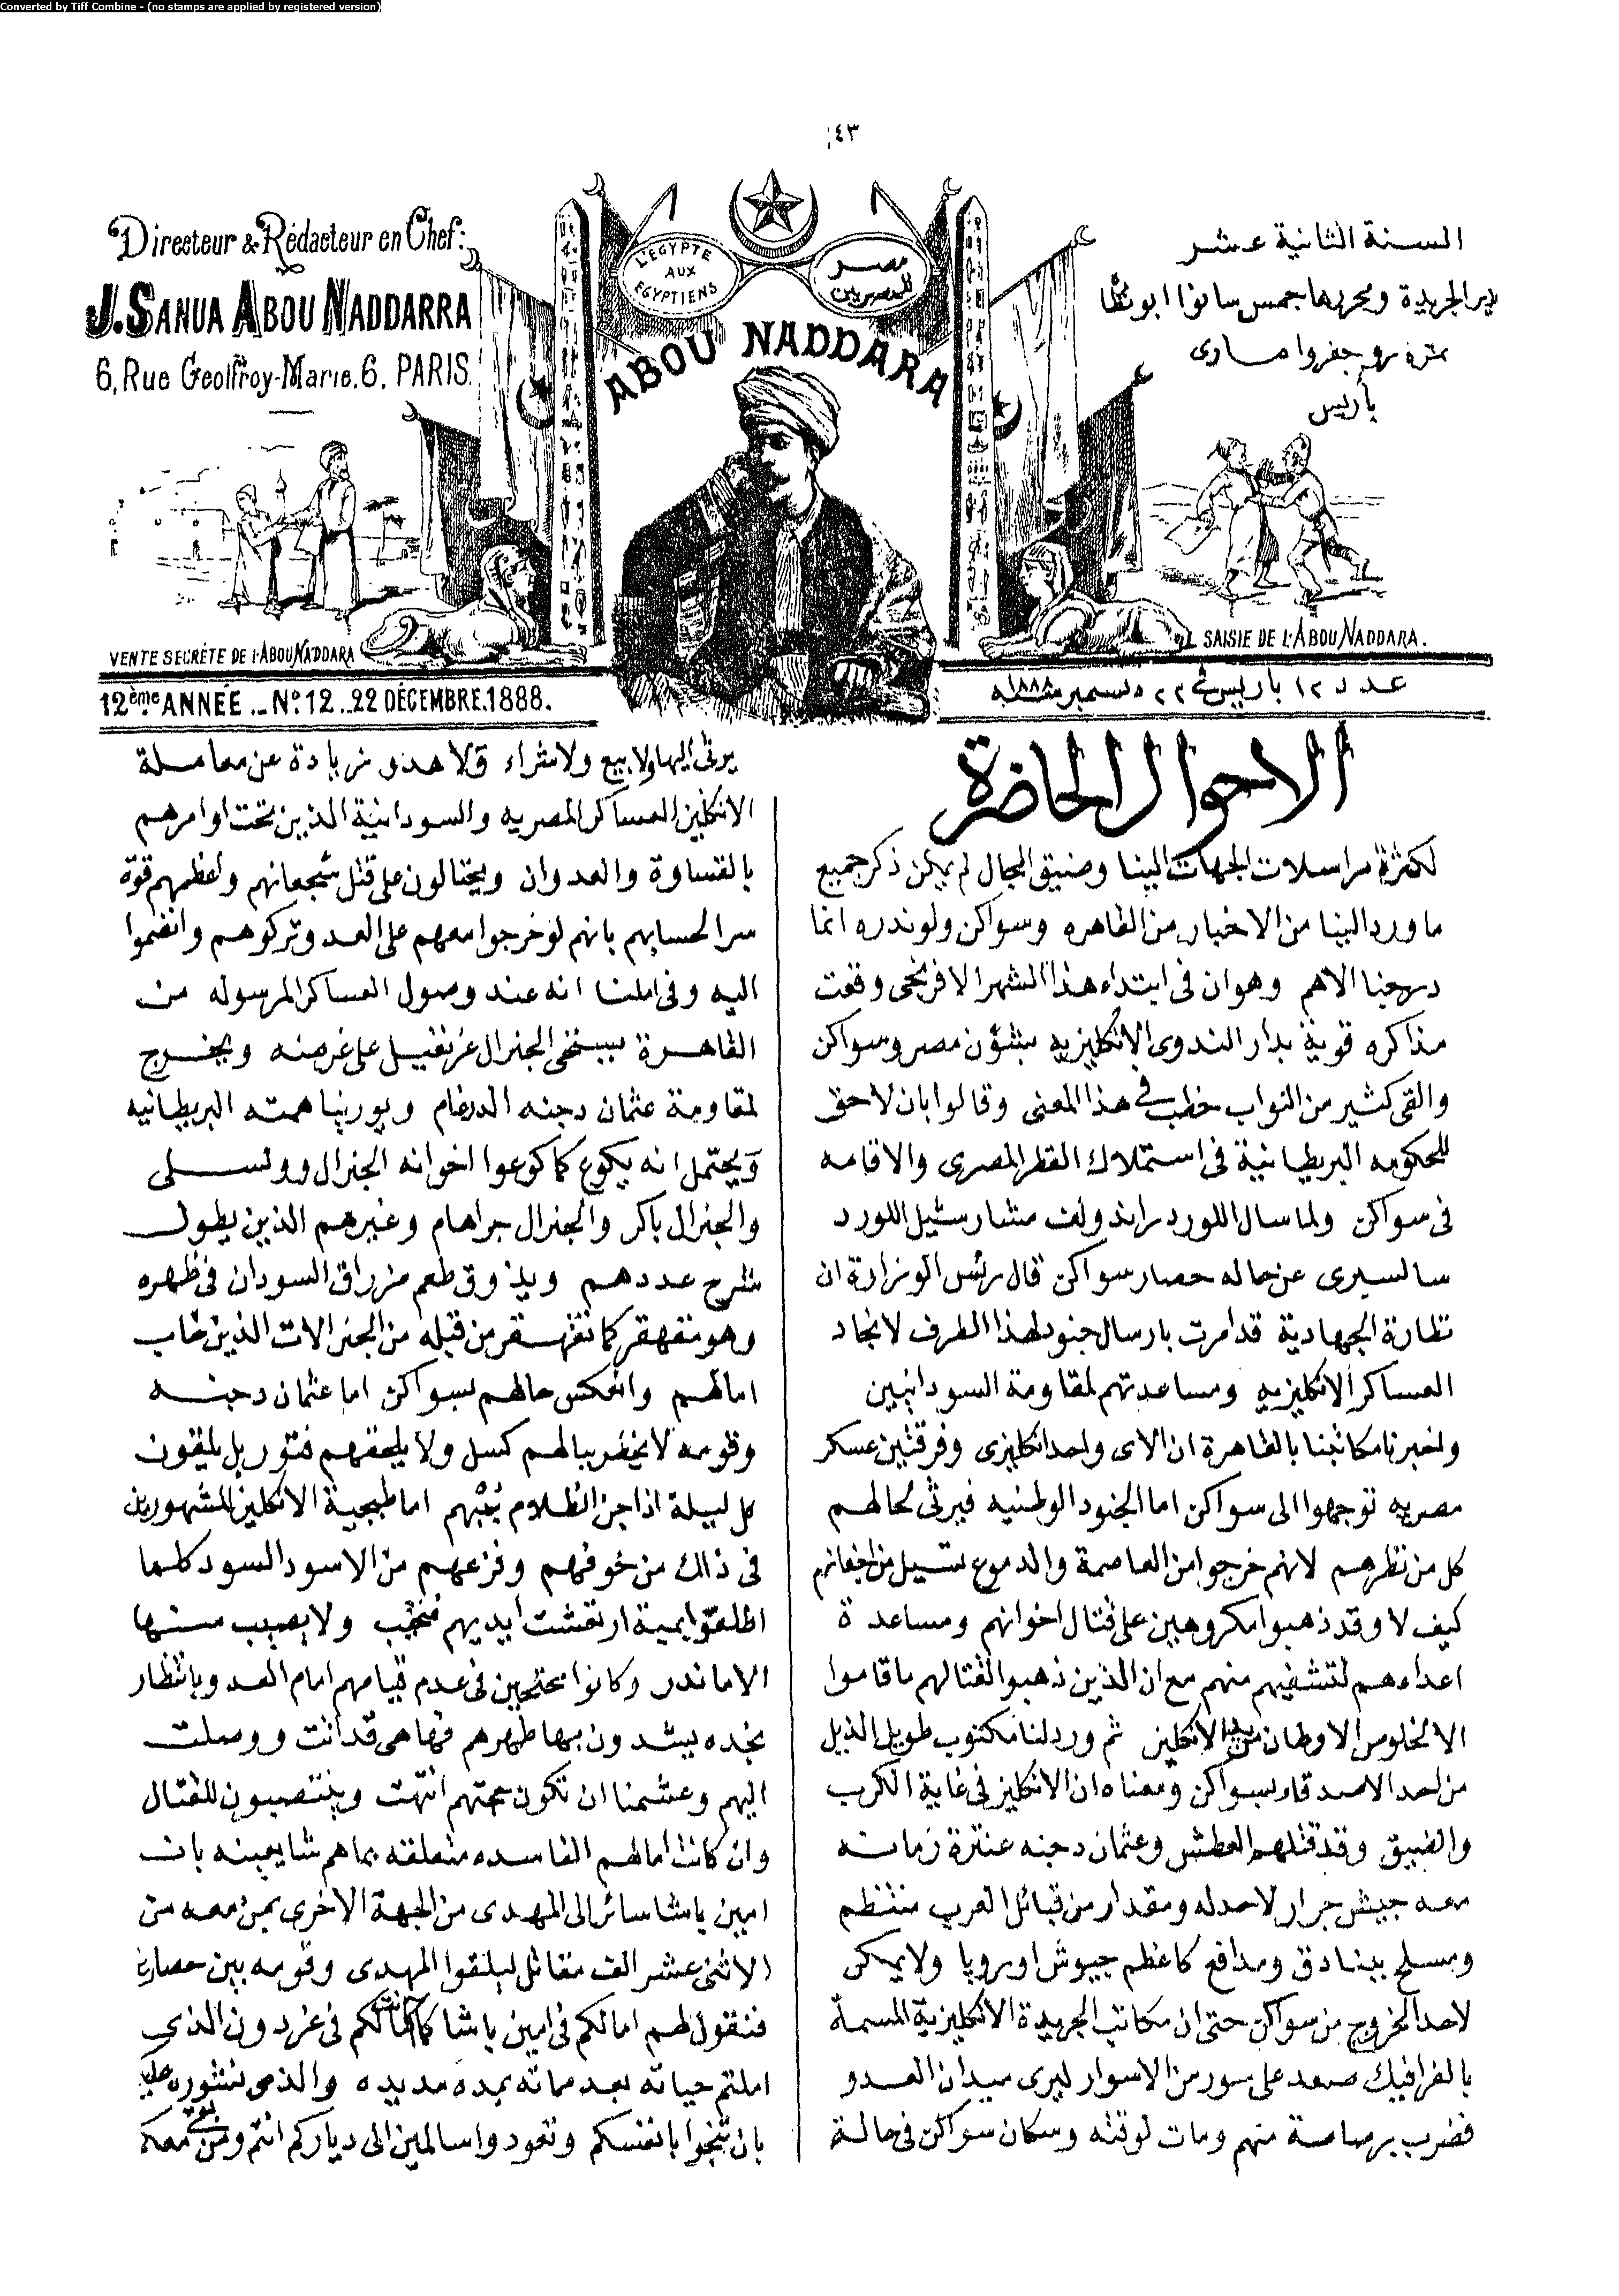 Converted by Tiff Combine - (no stamps are applied by registered version)
٤٣
Directeur & Rédacteur en Chef:
J. SANUA ABOU NADDARRA
6, Rue Geoffroy-Marie. 6, PARIS.
L'EGYPTE
AUX
EGYPTIENS
مصر
للمصريين
ABOU NADDARA
السنة الثانية عشر
مدير الجريدة ومحررها جمس سانوا ابو نظارا
نمره ٦ رو جفروا مارى
باريس
VENTE SECRÈTE DE L'ABOU NADDARA
SAISIE DE L'ABOU NADDARA.
12ème ANNÉE _ No. 12 _ 22 DÉCEMBRE. 1888.
عدد ١٢ باريس فى ٢٢ دسمبر سنة ١٨٨٨
الاحوال الحاضرة
لكثرة مراسلات الجهات الينا وضيق المجال لم يمكن ذكر جميع
ما ورد الينا من الاخبار من القاهره وسواكن ولوندره انما
درجنا الاهم وهو ان فى ابتداء هذا الشهر الافرنجى وقعت
مذاكره قوية بدار الندوى الانكليزيه بشؤن مصر وسواكن
والقى كثير من النواب خطب فى هذا المعنى وقالوا بان لا حق
للحكومه البريطانية فى استملاك القطر المصرى والاقامه
فى سواكن ولما سال اللورد راندولف مشارشيل اللورد
سالسبرى عن حاله حصار سواكن قال رئس الوزارة ان
نظارة الجهادية قد امرت بارسال جنود لهذا الطرف لانجاد
العساكر الانكليزيه ومساعدتهم لمقاومة السودانيين
واخبرنا مكاتبنا بالقاهرة ان الاى واحد انكليزى وفرقتين عسكر
مصريه توجهوا الى سواكن اما الجنود الوطنيه فيرثى لحالهم
كل من نظرهم لانهم خرجوا من العاصمة والدموع تسيل من اجفانهم
كيف لا وقد ذهبوا مكروهين على قتال اخوانهم ومساعدة
اعداءهم لتشفيهم منهم مع ان الذين ذهبوا لقتالهم ما قاموا
الا لخلوص الاوطان من يد الانكليز ثم ورد لنا مكتوب طويل الذيل
من احد الاصدقاء بسواكن ومعناه ان الانكليز فى غاية الكرب
والضيق وقد قتلهم العطش وعثمان دجنه عنترة زمانه
معه جيش جرار لا حد له ومقدار من قبائل العرب منتظم
ومسلح ببنادق ومدافع كاعظم جيوش اوروپا ولا يمكن
لاحد الخروج من سواكن حتى ان مكاتب الجريدة الانكليزية المسمة
بالغرافيك صعد على سور من الاسوار ليرى ميدان العدو
فضرب برصاصة منهم ومات لوقته وسكان سواكن فى حالة
يرثى اليها ولا بيع ولا شراء ولا هدو زيادة عن معاملة
الانكليز العساكر المصريه والسودانية الذين تحت اوامرهم
بالقساوة والعدوان ويحتالون على قتل شجعانهم واعظمهم قوة
سرا لحسابهم بانهم لو خرجوا معهم على العدو تركوهم وانضموا
اليه وفى املنا انه عند وصول العساكر المرسوله من
القاهرة يستحى الجنرال غرنفيل على عرضه ويخرج
لمقاومة عثمان دجنه الدرغام ويورينا همته البريطانيه
ويحتمل انه يكوع كما كوعوا اخوانه الجنرال وولسلى
والجنرال باكر والجنرال جراهام وغيرهم الذين يطول
شرح عددهم ويذوق طعم مزراق السودان فى ظهره
وهو متقهقر كما تقهقر من قبله من الجنرالات الذين خاب
امالهم وانعكس حالهم بسواكن اما عثمان دجنه
وقومه لا يخطر ببالهم كسل ولا يلحقهم فتور بل يلقون
كل ليلة اذا جن الظلام اما طبجية الانكليز المشهورين
فى ذلك من خوفهم وفزعهم من الاسود السود كلما
اطلقوا ارتعشت ايديهم ولا يصيب منها
الا ما ندر وكانوا محتجين فى عدم قيامهم امام العدو بانتظار
نجده يشدون بها ظهرهم فها هى قد اتت ووصلت
اليهم وعشمنا ان تكون حجتهم انتهت وينتصبون للقتال
وان كانت امالهم الفاسده متعلقه بما هم شايعينه بان
امين پاشا سائر الى المهدى من الجهة الاخرى بمن معه من
الاثنى عشر الف مقاتل ليلقوا المهدى وقومه بين حصارين
فنقول لهم امالكم فى امين پاشا كما كانت امالكم فى غردون الذى
املتم حياته بعد مماته بمده مديده والذى نشوره عليكم
بان تنجوا بانفسكم وتعودوا سالمين الى دياركم انتم ومن معكم